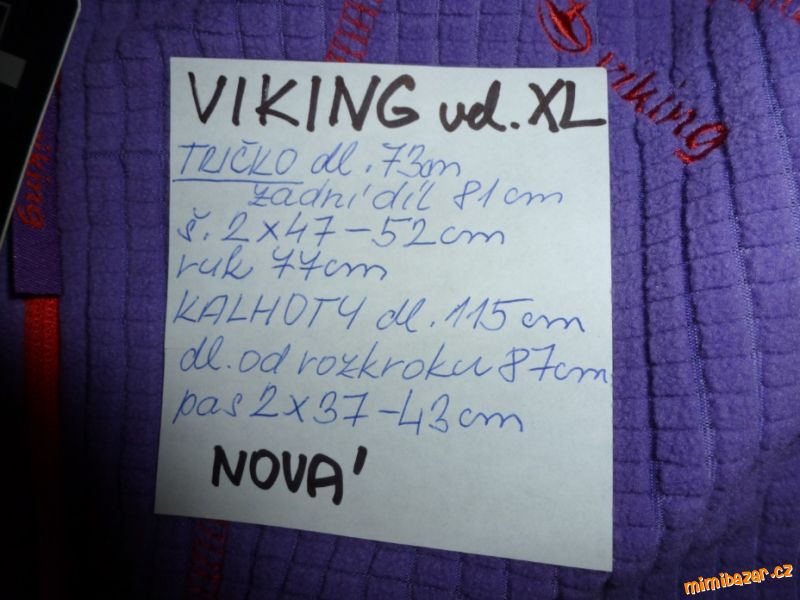 VIKING vel. XL
TRIČKO dl. 73cm
zadní díl 81cm
š. 2x47-52cm
ruk 77cm
KALHOTY dl. 115cm
dl. od rozkroku 87cm
pas 2x37-43cm
NOVÁ
viking
viking
mimibazar.cz